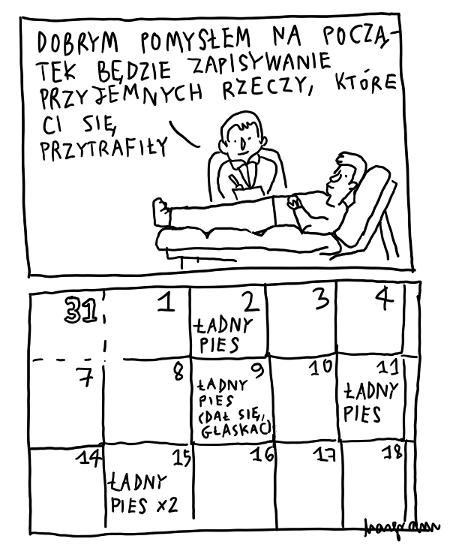 DOBRYM POMYSŁEM NA POCZĄ-
TEK BĘDZIE ZAPISYWANIE
PRZYJEMNYCH RZECZY, KTÓRE
CI SIĘ
PRZYTRAFIŁY
31 1 2 3 4
ŁADNY
PIES
7 8 9 10 11
ŁADNY
PIES
(DAŁ SIĘ
GŁASKAĆ)
ŁADNY
PIES
14 15 16 17 18
ŁADNY
PIES x2